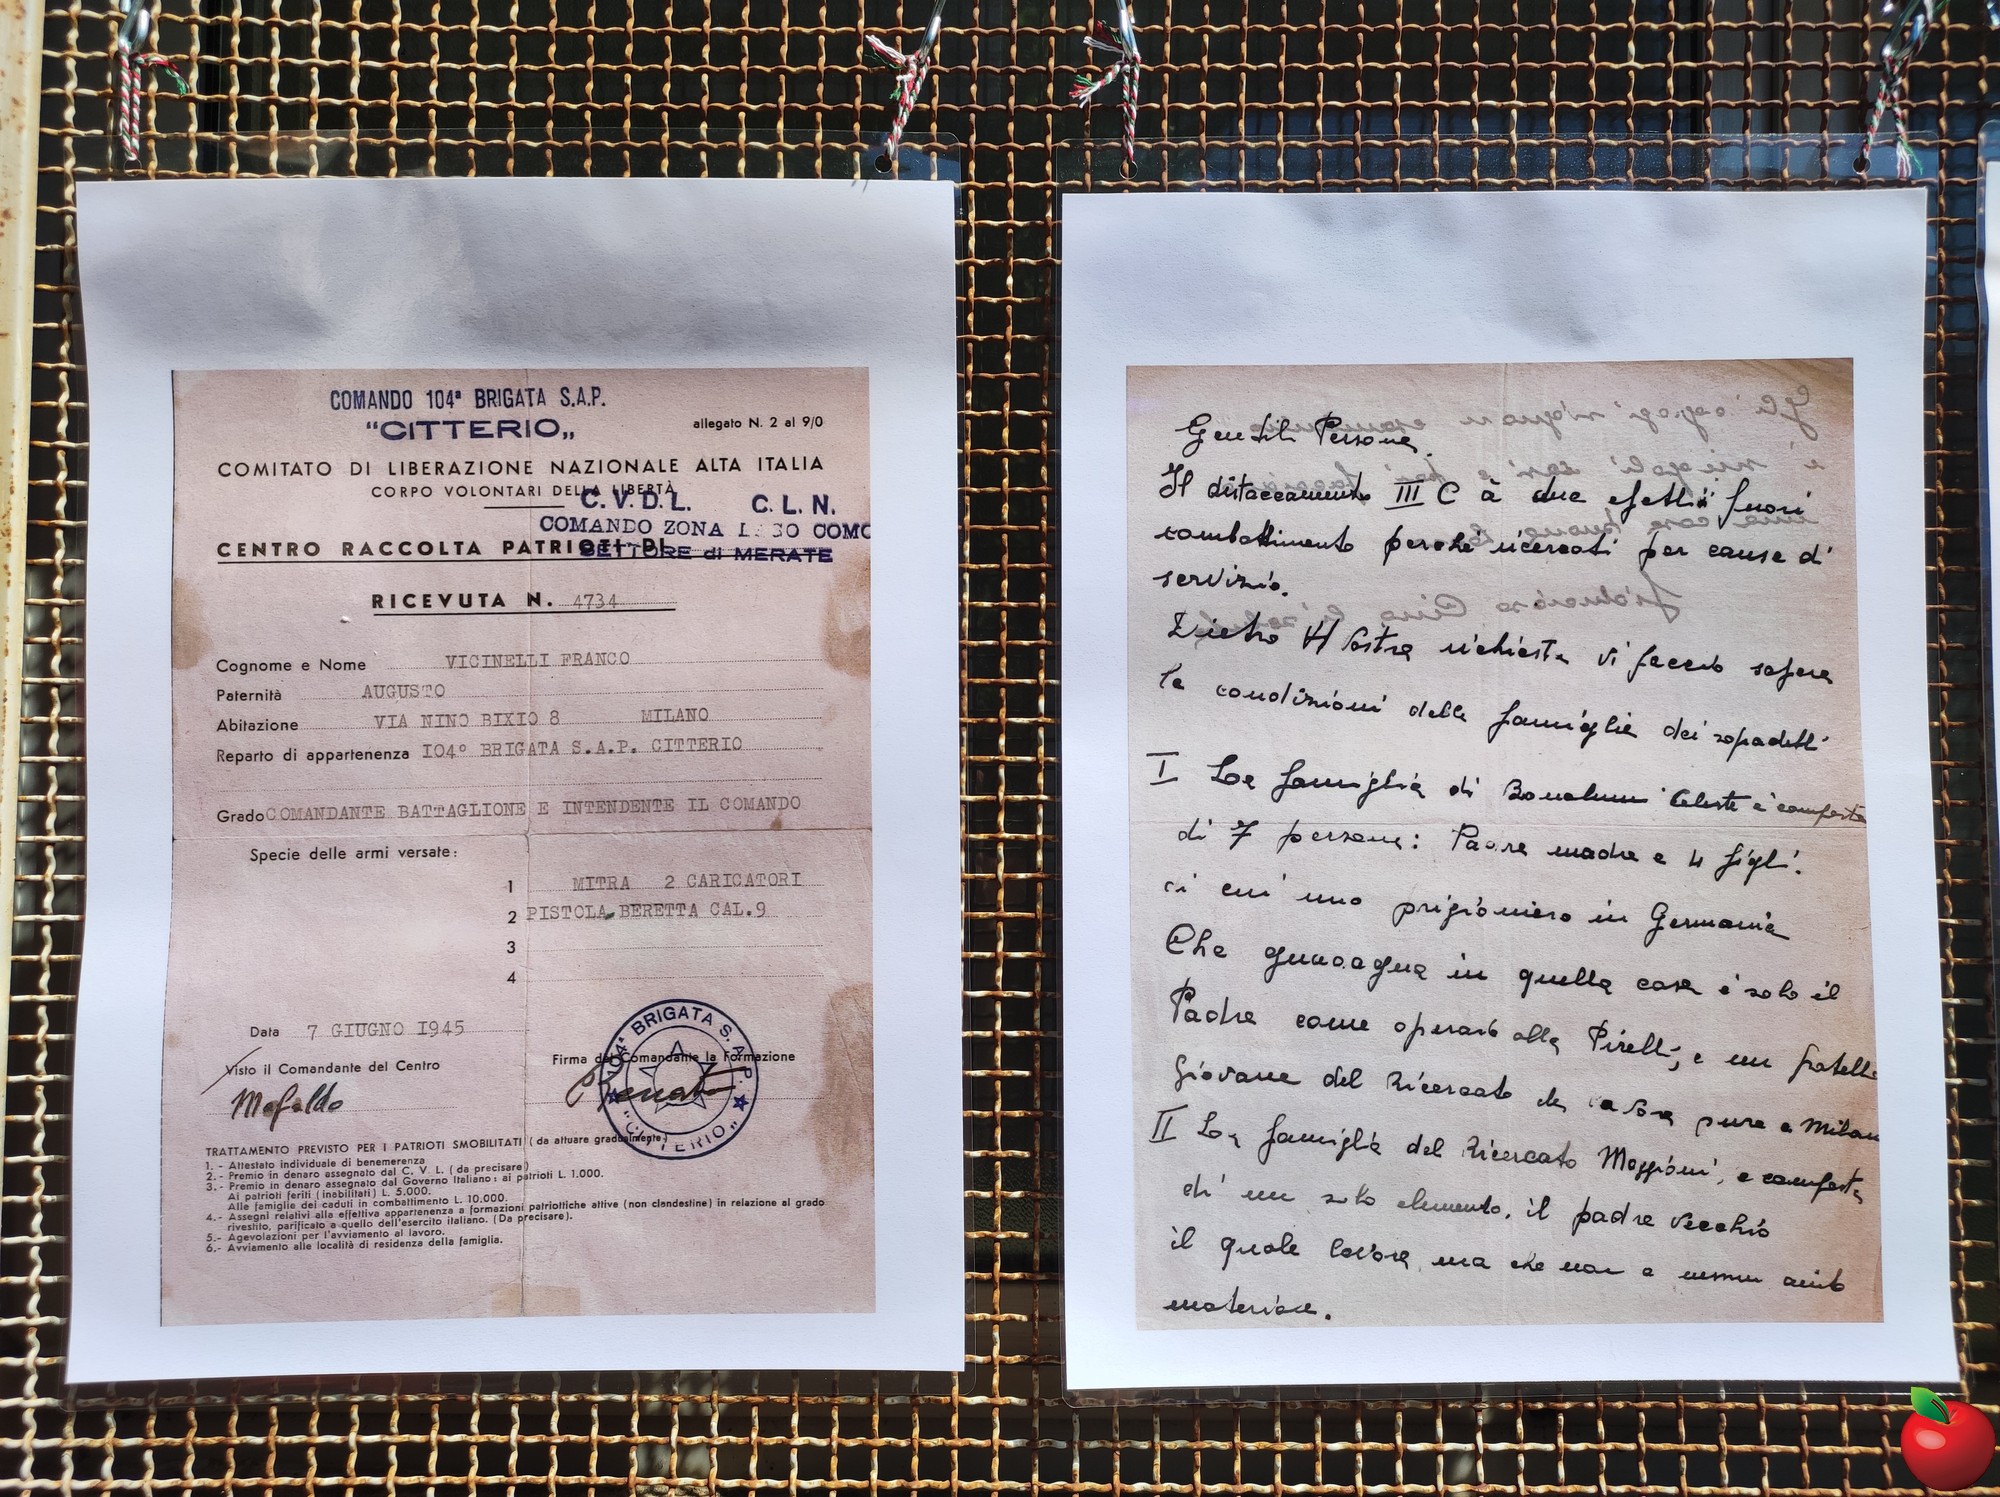 COMANDO 104ª BRIGATA S.A.P.
"CITTERIO„
allegato N. 2 al 9/0
COMITATO DI LIBERAZIONE NAZIONALE ALTA ITALIA
CORPO VOLONTARI DELLA LIBERTÀ
C.V.D.L. C.L.N.
COMANDO ZONA L GO COMO
CENTRO RACCOLTA PATRIOTI DI
SETTORE di MERATE
RICEVUTA N. 4734
Cognome e Nome VICINELLI FRANCO
Paternità AUGUSTO
Abitazione VIA NINO BIXIO 8 MILANO
Reparto di appartenenza I04º BRIGATA S.A.P. CITTERIO
Grado COMANDANTE BATTAGLIONE E INTENDENTE IL COMANDO
Specie delle armi versate:
1 MITRA 2 CARICATORI
2 PISTOLA BERETTA CAL.9
3
4
Data 7 GIUGNO I945
Visto il Comandante del Centro
Mafaldo
Firma del Comandante la Formazione
Renato
104ª BRIGATA S.A.P. "CITTERIO„
TRATTAMENTO PREVISTO PER I PATRIOTI SMOBILITATI (da attuare gradualmente)
1. - Attestato individuale di benemerenza
2. - Premio in denaro assegnato dal C. V. L. (da precisare)
3. - Premio in denaro assegnato dal Governo Italiano: ai patrioti L. 1.000.
Ai patrioti feriti (inabilitati) L. 5.000.
Alle famiglie dei caduti in combattimento L. 10.000.
4. - Assegni relativi alla effettiva appartenenza a formazioni patriottiche attive (non clandestine) in relazione al grado
rivestito, parificato a quello dell'esercito italiano. (Da precisare).
5. - Agevolazioni per l'avviamento al lavoro.
6. - Avviamento alle località di residenza della famiglia.
Gentili Persone.
Il distaccamento III C à due effettivi fuori
combattimento perché ricercati per cause di
servizio.
Dietro Vostra richiesta vi faccio sapere
le condizioni delle famiglie dei sopradetti
I La famiglia di Bonalumi Celeste è composta
di 7 persone: Padre madre e 4 figli.
di cui uno prigioniero in Germania
Che guadagna in quella casa è solo il
Padre come operaio alla Pirelli, e un fratello
Giovane del Ricercato che lavora pure a Milano
II La famiglia del Ricercato Maggioni, e composta
di un solo elemento, il padre vecchio
il quale lavora, ma che non a nessun aiuto
materiale.